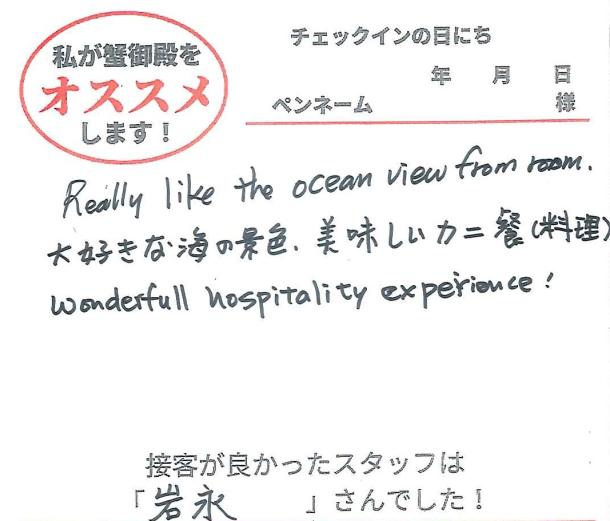 私が蟹御殿を
オススメ
します！
チェックインの日にち
年 月 日
ペンネーム 様
Really like the ocean view from room.
大好きな海の景色、美味しいカニ餐(料理)
wonderfull hospitality experience!
接客が良かったスタッフは
「岩永 」さんでした！